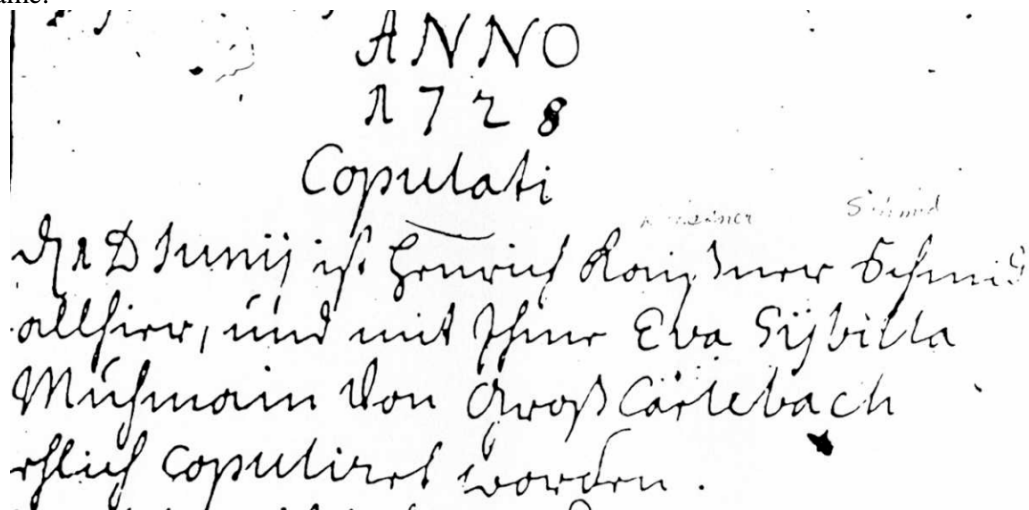 ANNO
1728
Copulati
Schmid
d 1 D Junij ist Henrich Schmid
allhier, und mit Ihme Eva Sijbilla
Von Groß Carlebach
ehlich copuliret worden.